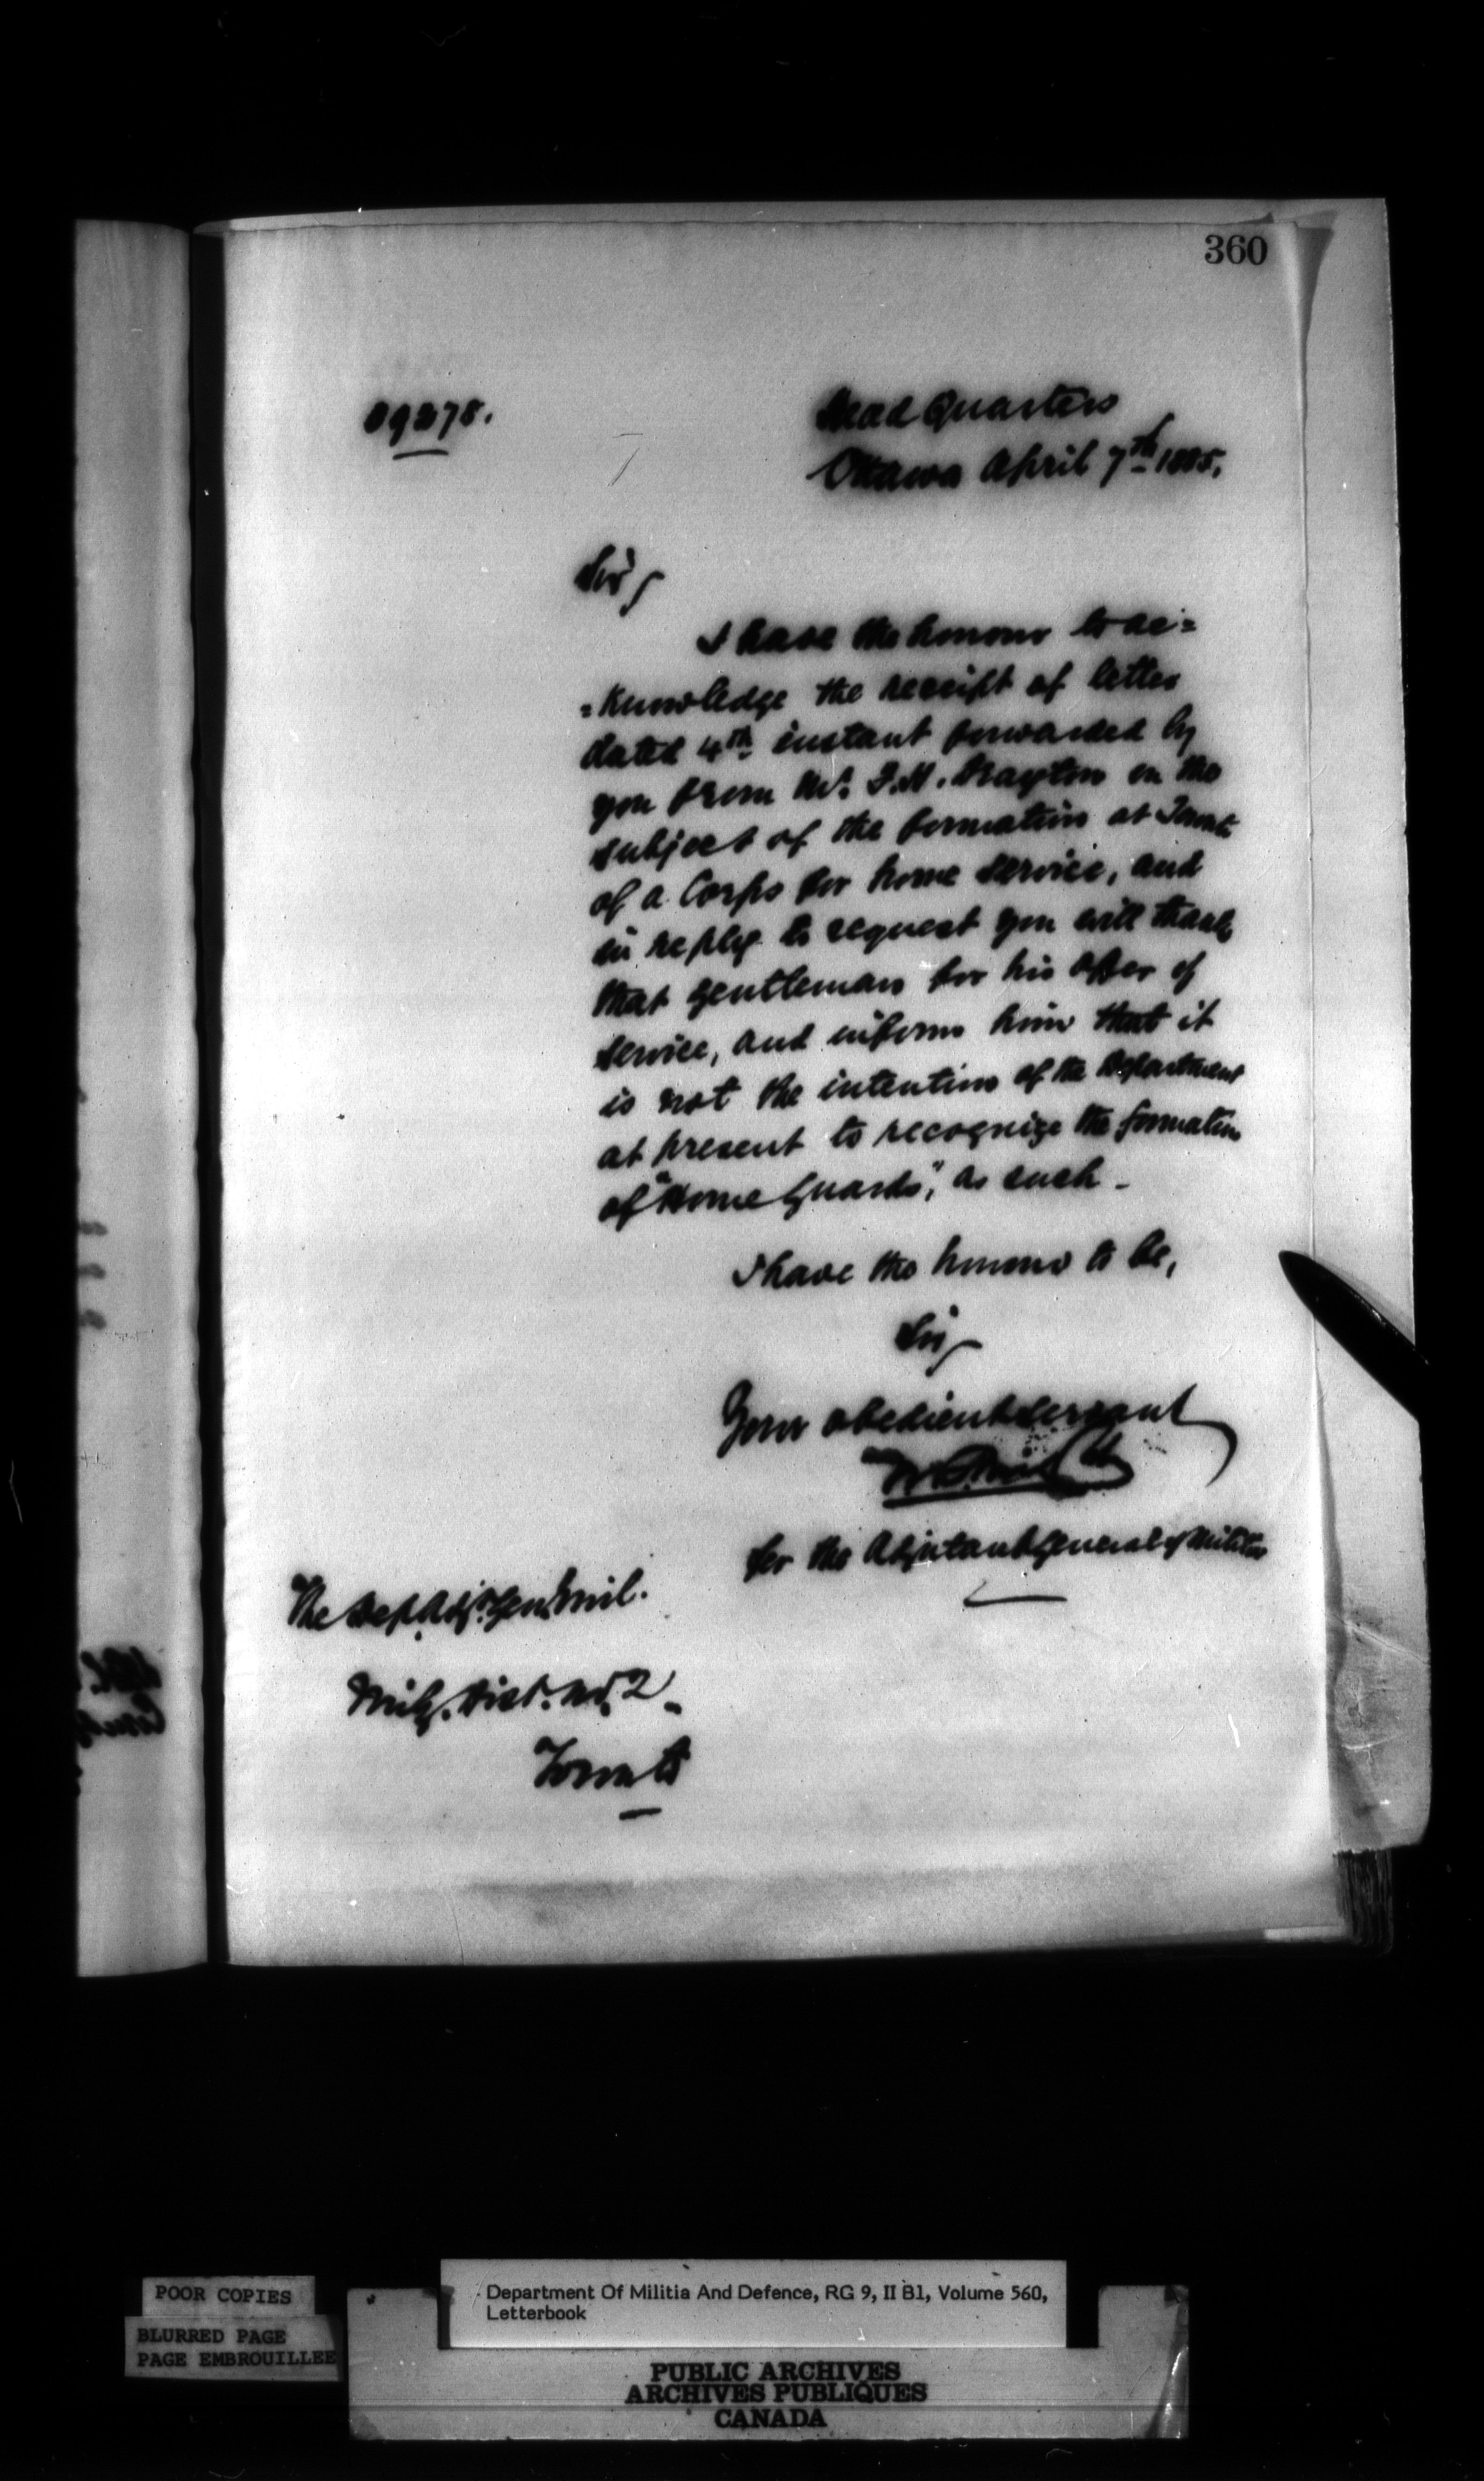 360
09278.
Head Quarters
Ottawa April 7th 1885.
Sir,
I have the honour to ac=
=knowledge the receipt of letter
dated 4th instant forwarded by
you from Mr. Drayton on the
subject of the formation at Toronto
of a Corps for home service, and
in reply to request you will thank
that gentleman for his offer of
service, and inform him that it
is not the intention of the Department
at present to recognize the formation
of "Home Guards", as such -
I have the honour to be,
Sir,
Your obedient servant
for the Adjutant General of Militia
The Dep. Adj. Genl. Mil.
Mily. Dist. No. 2
Toronto
POOR COPIES
BLURRED PAGE
PAGE EMBROUILLEE
Department Of Militia And Defence, RG 9, II B1, Volume 560,
Letterbook
PUBLIC ARCHIVES
ARCHIVES PUBLIQUES
CANADA